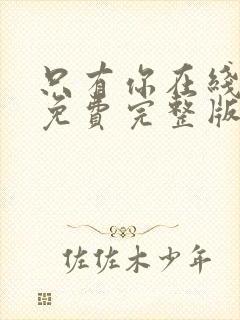 只有你在线
免费完整版
佐佐木少年